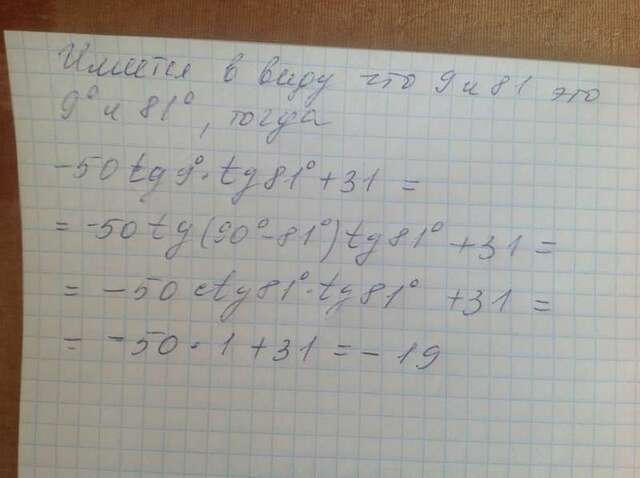 Имеется в виду что 9 и 81 это
9° и 81°, тогда
-50 tg 9° · tg 81° + 31 =
= -50 tg (90° - 81°) tg 81° + 31 =
= -50 ctg 81° · tg 81° + 31 =
= -50 · 1 + 31 = -19